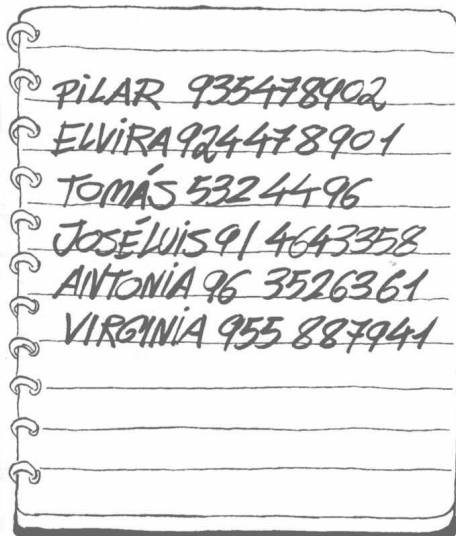 PiLAR 935478902
ELViRA 924478901
TOMÁS 5324496
JOSÉ LUIS 91 4643358
ANTONiA 96 3526361
VIRGYNiA 955 887941